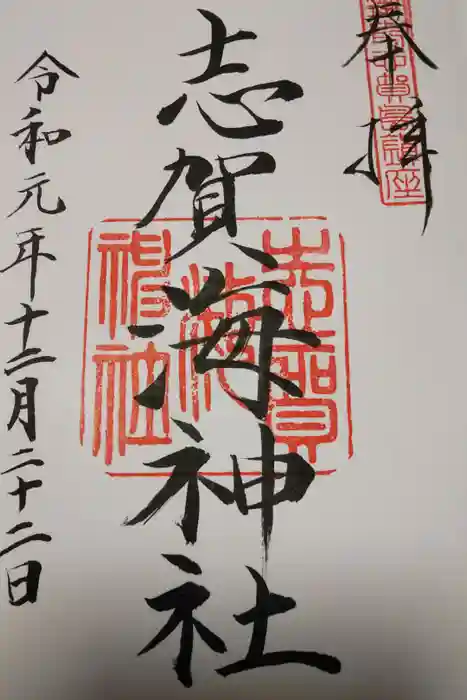 奉拝
志賀海神社
令和元年十二月二十二日
志賀
海
神社